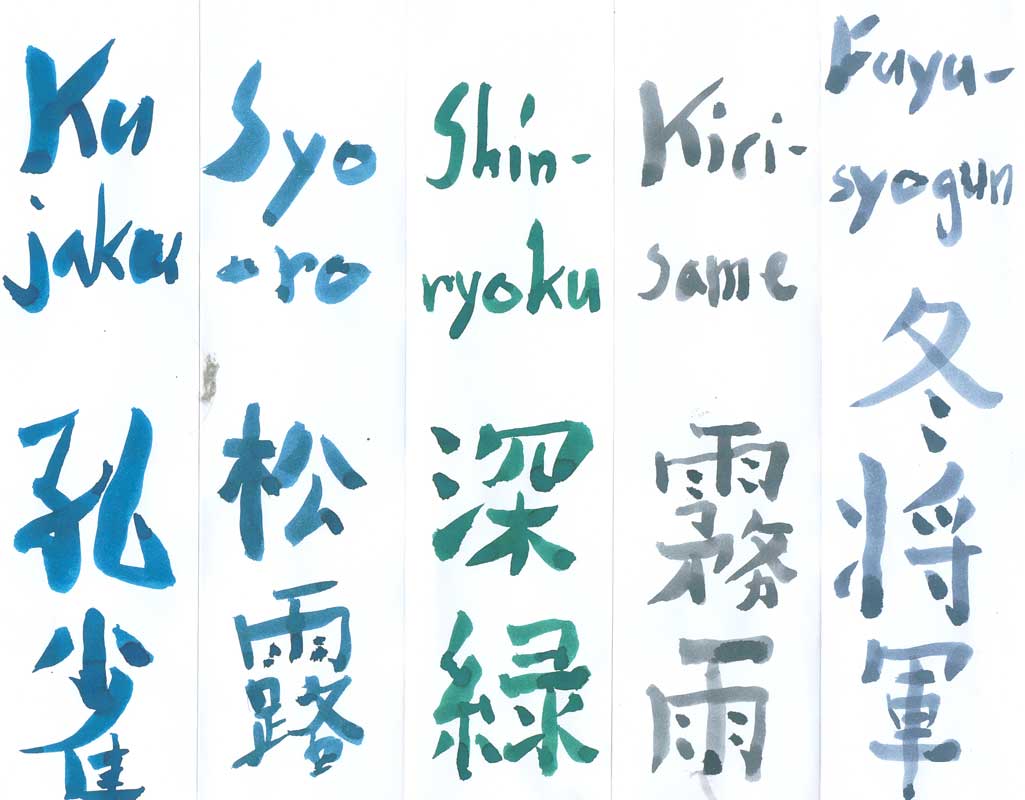 Ku
jaku
孔
雀
Syo
-ro
松
露
Shin-
ryoku
深
緑
Kiri-
same
霧
雨
Fuyu-
syogun
冬
将
軍